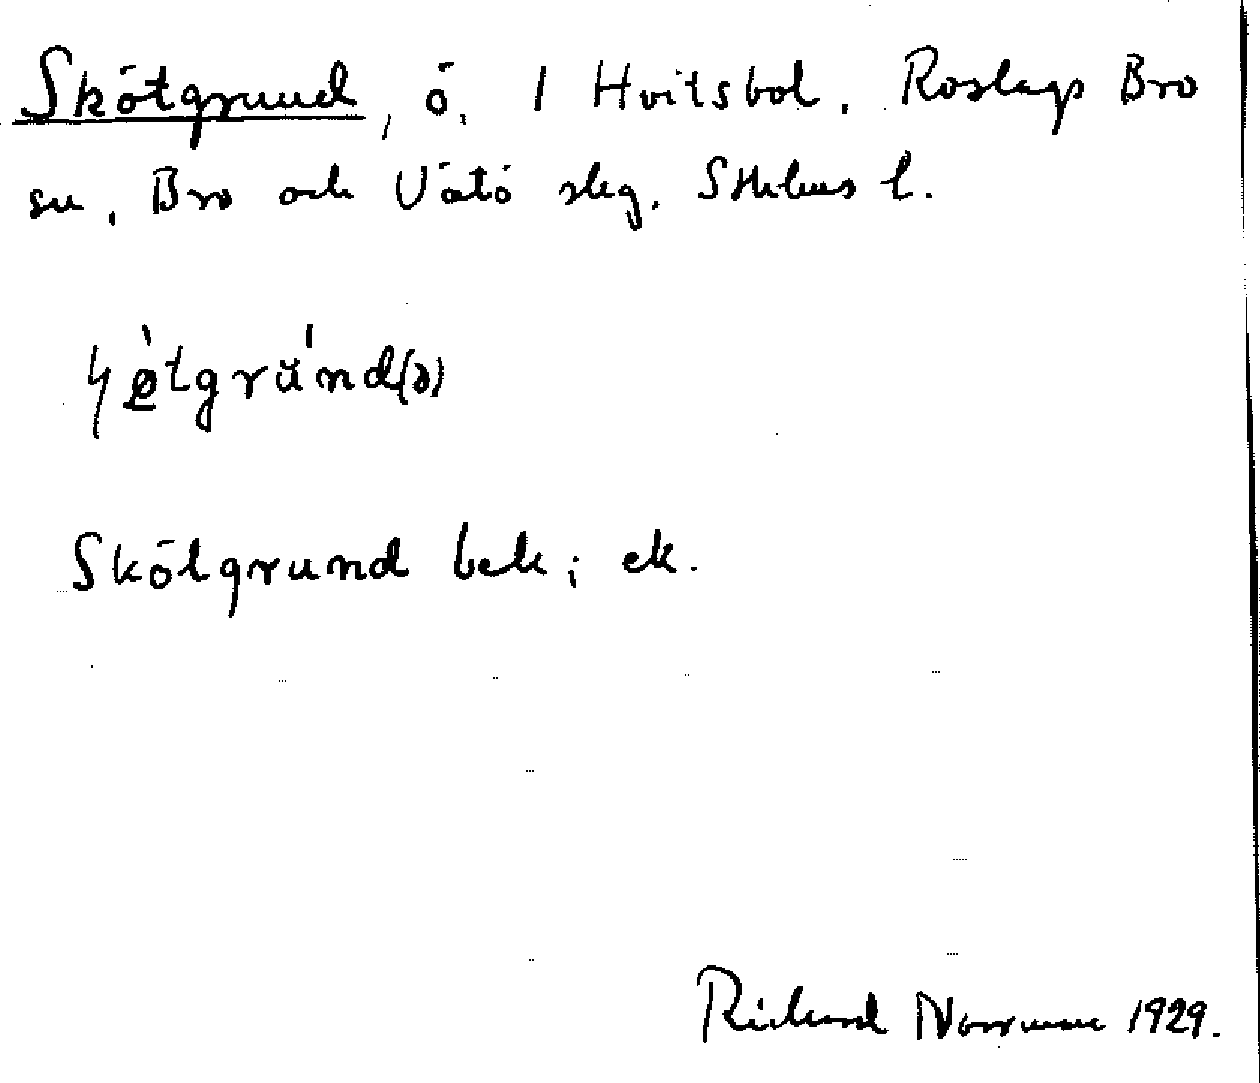 Skötgrund, ö. 1 Hvitsbol. Roslags Bro
sn. Bro och Vätö skg. Sthlms l.
Skötgrund bek; ek.
Richard Norrman 1929.